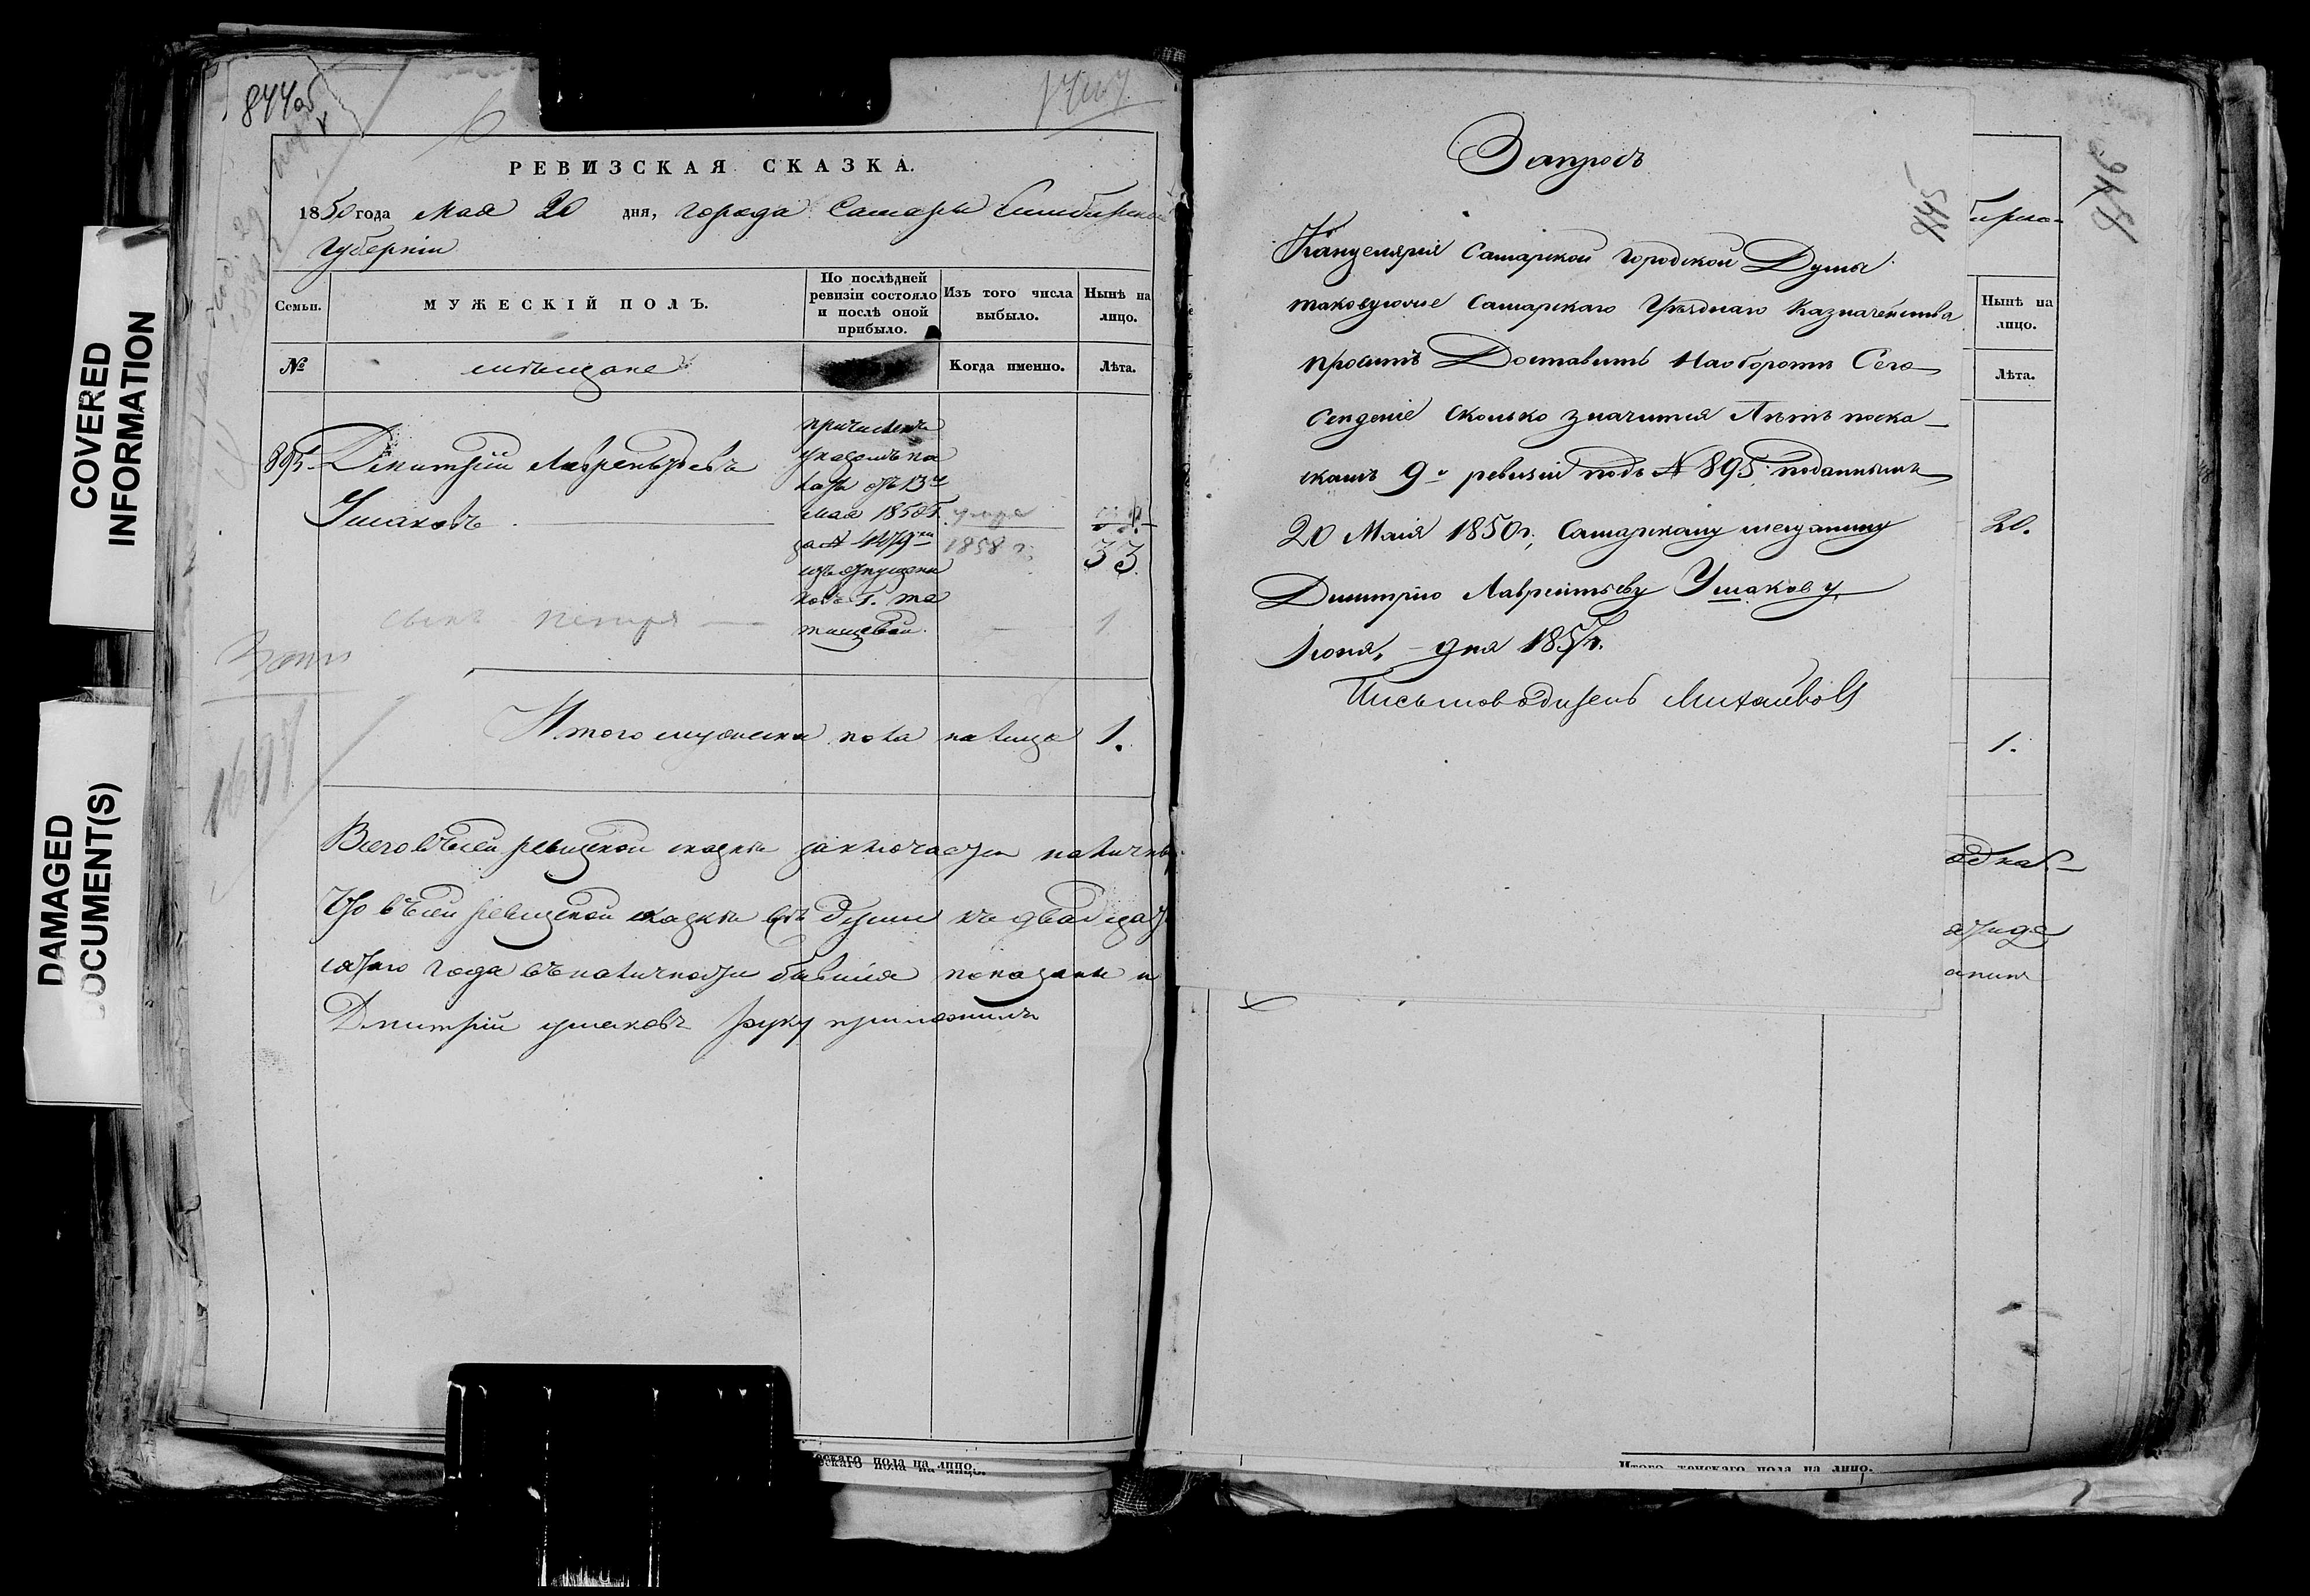 COVERED
INFORMATION
DAMAGED
DOCUMENT(S)
844об
РЕВИЗСКАЯ СКАЗКА.
1850 года Мая 20 дня, города Самары Симбирской
Губернiи
Семьи.
МУЖЕСКIЙ ПОЛЪ.
По послѣдней
ревизiи состояло
и послѣ оной
прибыло.
Изъ того числа
выбыло.
Нынѣ на
лицо.
№
мѣщане
Когда именно.
Лѣта.
895. Дмитрiй Лаврентьевъ
Ушаковъ
причисленъ
указомъ па
латы отъ 13го
мая 1850 г.
за № 4079
изъ отпущени
ковъ Г. та
тищевой.
умре
1858 г.
33
сынъ Петръ 1
Итого мужеска пола на лицо 1.
Всего въ сей ревизской сказки заключается наличны
Что въ сей ревизской сказки всѣ души къ двадцат
сятаго года въ наличности бывшiя показаны и
Дмитрiй ушаковъ руку приложилъ
ескаго пола на лицо.
Запросъ
445
446
Канцелярiя Самарской Городской Думы
таковуюже Самарскаго Уѣзднаго Казначейства
проситъ Доставить На оборотѣ Сего
Сведенiе сколько значится Лѣтъ поска-
скамъ 9й ревизiи подъ № 895 поданнымъ
20 Маiя 1850 г., Самарскому мещанину
Дмитрiю Лаврентьеву Ушакову,
Iюня, – дня 1857 г.
Письмоводитель Михайлов
бирско-
Нынѣ на
лицо.
Лѣта.
20.
1.
одна.
Итого женскаго пола на лицо.